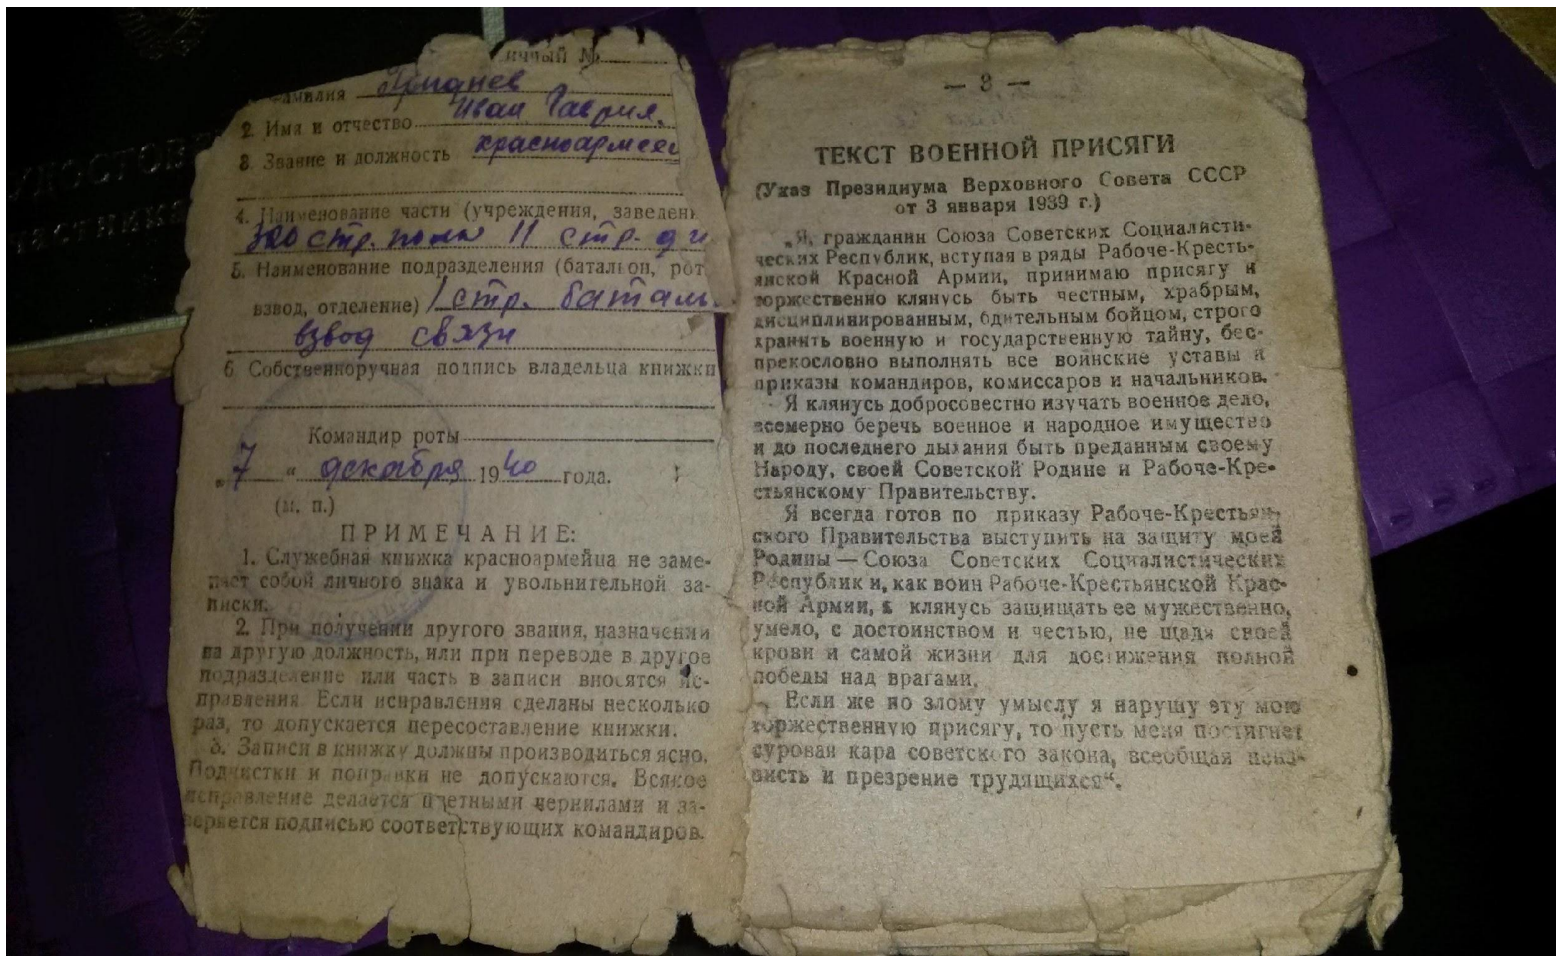 ичный №
амилия
2. Имя и отчество Иван Гаврил.
3. Звание и должность красноармеец
4. Наименование части (учреждения, заведен
стр. полк 11 стр. ди
5. Наименование подразделения (батальон, рот
взвод, отделение) 1 стр. баталь
взвод связи
6 Собственноручная подпись владельца книжки
Командир роты
„7“ декабря 1940 года.
(м. п.)
ПРИМЕЧАНИЕ:
1. Служебная книжка красноармейца не заме-
няет собой личного знака и увольнительной за-
писки.
2. При получении другого звания, назначении
на другую должность, или при переводе в другое
подразделение или часть в записи вносятся ис-
правления. Если исправления сделаны несколько
раз, то допускается пересоставление книжки.
3. Записи в книжку должны производиться ясно.
Подчистки и поправки не допускаются. Всякое
исправление делается цветными чернилами и за-
веряется подписью соответствующих командиров.
— 3 —
ТЕКСТ ВОЕННОЙ ПРИСЯГИ
(Указ Президиума Верховного Совета СССР
от 3 января 1939 г.)
„Я, гражданин Союза Советских Социалисти-
ческих Республик, вступая в ряды Рабоче-Кресть-
янской Красной Армии, принимаю присягу и
торжественно клянусь быть честным, храбрым,
дисциплинированным, бдительным бойцом, строго
хранить военную и государственную тайну, бес-
прекословно выполнять все воинские уставы и
приказы командиров, комиссаров и начальников.
Я клянусь добросовестно изучать военное дело,
всемерно беречь военное и народное имущество
и до последнего дыхания быть преданным своему
Народу, своей Советской Родине и Рабоче-Кре-
стьянскому Правительству.
Я всегда готов по приказу Рабоче-Крестьян-
ского Правительства выступить на защиту моей
Родины — Союза Советских Социалистических
Республик и, как воин Рабоче-Крестьянской Крас-
ной Армии, я клянусь защищать ее мужественно,
умело, с достоинством и честью, не щадя своей
крови и самой жизни для достижения полной
победы над врагами.
Если же по злому умыслу я нарушу эту мою
торжественную присягу, то пусть меня постигнет
суровая кара советского закона, всеобщая нена-
висть и презрение трудящихся“.